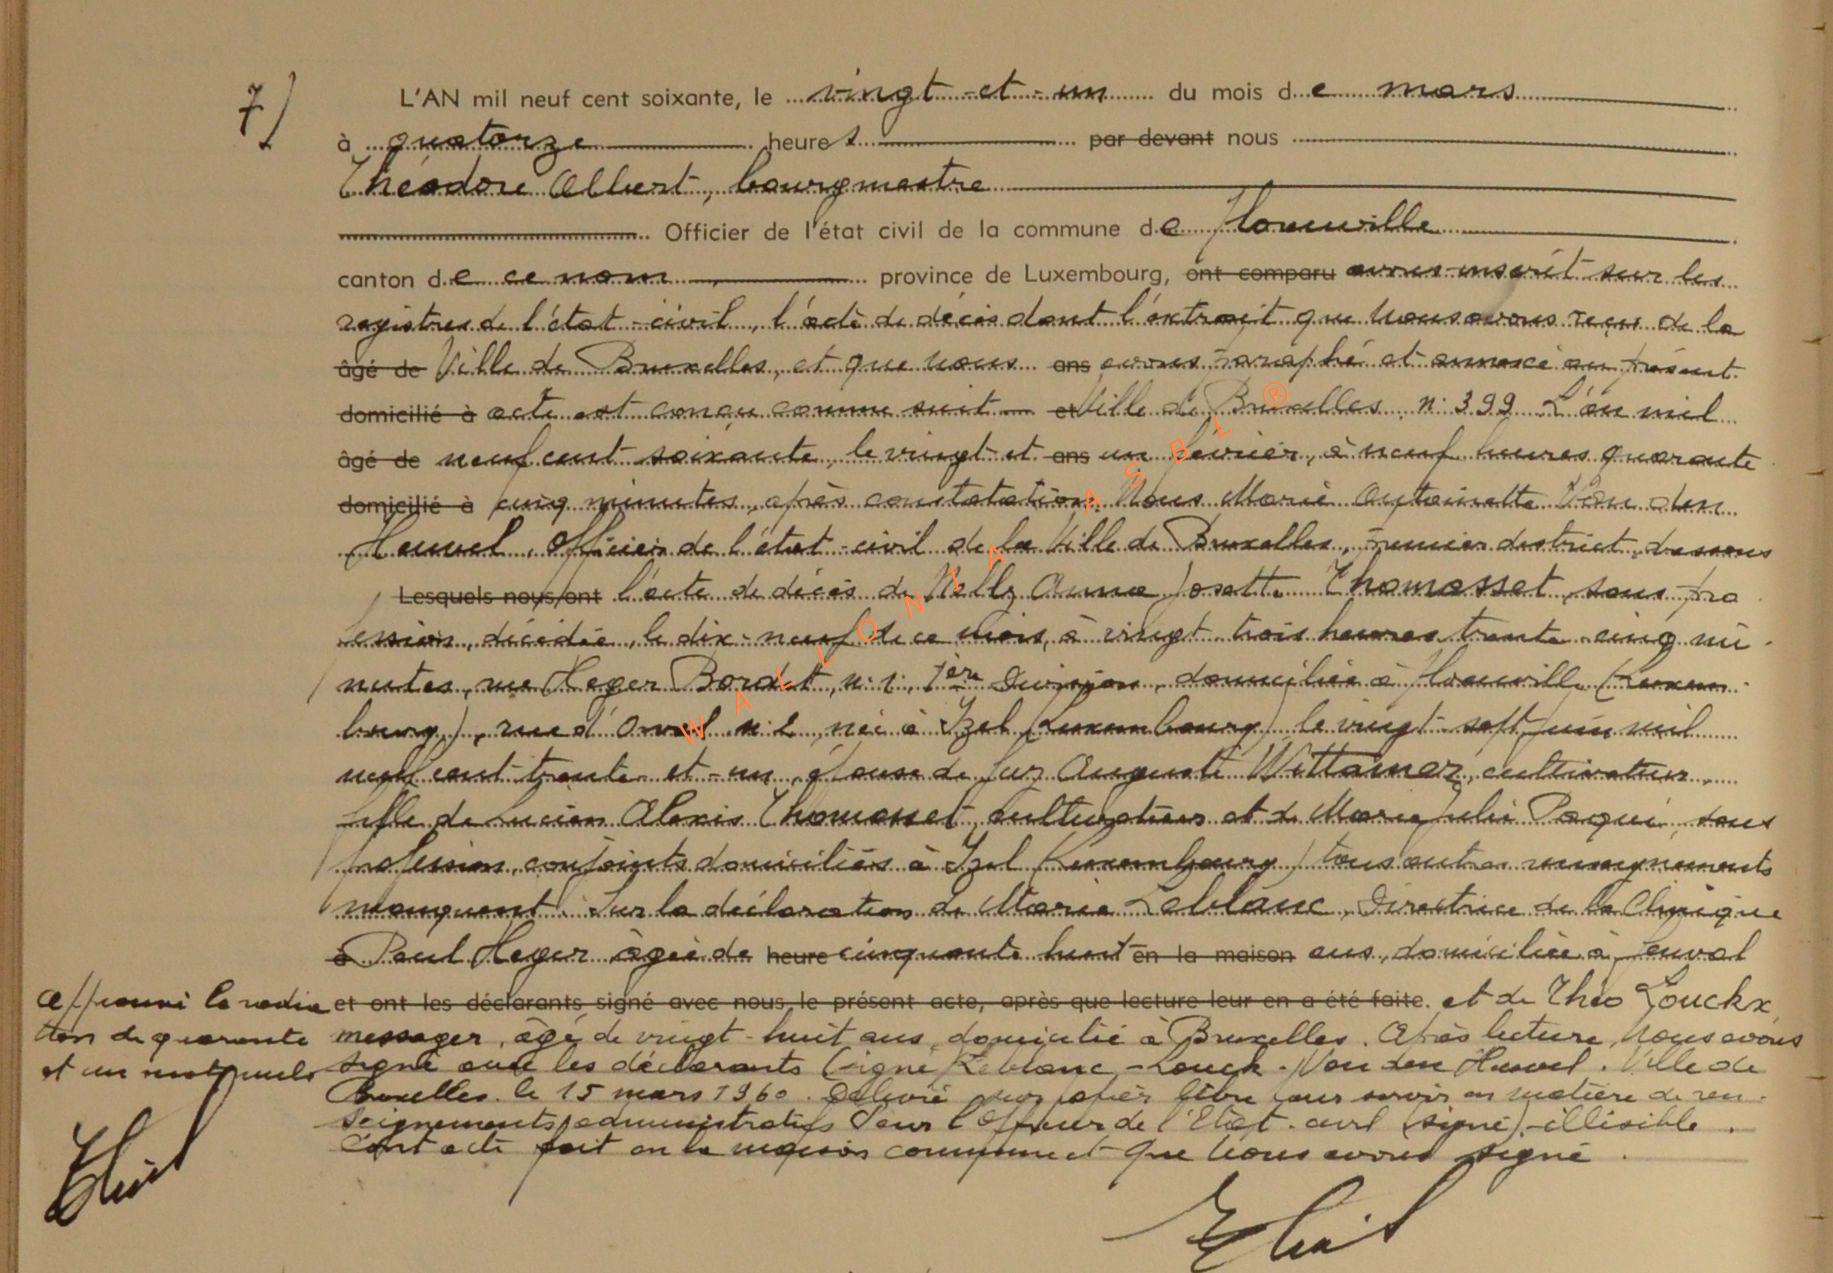 7/
L'AN mil neuf cent soixante, le vingt-et-un du mois de mars
à quatorze heures par devant nous
Théodore Albert, bourgmestre
Officier de l'état civil de la commune de Flamierge
canton de ce nom province de Luxembourg, ont comparu avons inscrit sur les
registres de l'état-civil, l'acte de décès dont l'extrait que nous avons reçu de la
âgé de Ville de Bruxelles, et que nous ans avons paraphé et annexé au présent
domicilié à acte est conçu comme suit et Ville de Bruxelles n: 399 L'an mil
âgé de neuf cent soixante, le vingt-et ans un février, à neuf heures quarante
domicilié à cinq minutes, après constatation Nous Marie Antoinette Van den
Heuvel, Officier de l'état-civil de la Ville de Bruxelles, premier district, dressons
Lesquels nous ont l'acte de décès de Nelly Anna Josette Thomasset, sans pro
fession, décédée, le dix-neuf de ce mois, à vingt trois heures trente-cinq mi-
nutes, rue Heger Bordet, n: 1, 1ère Division, domiciliée à (Luxem-
bourg), rue d' n: 2, née à Izel (Luxembourg) le vingt-sept juin mil
neuf cent trente-et-un, épouse de Guy Auguste Wittamer, cultivateur,
fille de Lucien Alexis Thomasset, cultivateur et de Marie Julie Paqué, sans
profession, conjoints domiciliés à Izel (Luxembourg) tous autres renseignements
manquent. Sur la déclaration de Marie Leblanc, Directrice de la Clinique
à Paul Heger âgée de heure cinquante huit en la maison ans, domiciliée à Genval
et ont les déclarants signé avec nous, le présent acte, après que lecture leur en a été faite. et de Théo Louckx,
messager, âgé de vingt-huit ans, domicilié à Bruxelles. Après lecture, nous avons
signé avec les déclarants (signé) Leblanc - Louckx - Van den Heuvel. Ville de
Bruxelles. le 15 mars 1960. Délivré sur papier libre pour servir en matière de ren-
seignements administratifs Pour l'Officier de l'Etat-civil (signé) illisible.
Dont acte fait en la maison communale et que nous avons signé.
Approuvé la radia
tion de quarante
et un mots nuls
WALLONIA ASBL ®